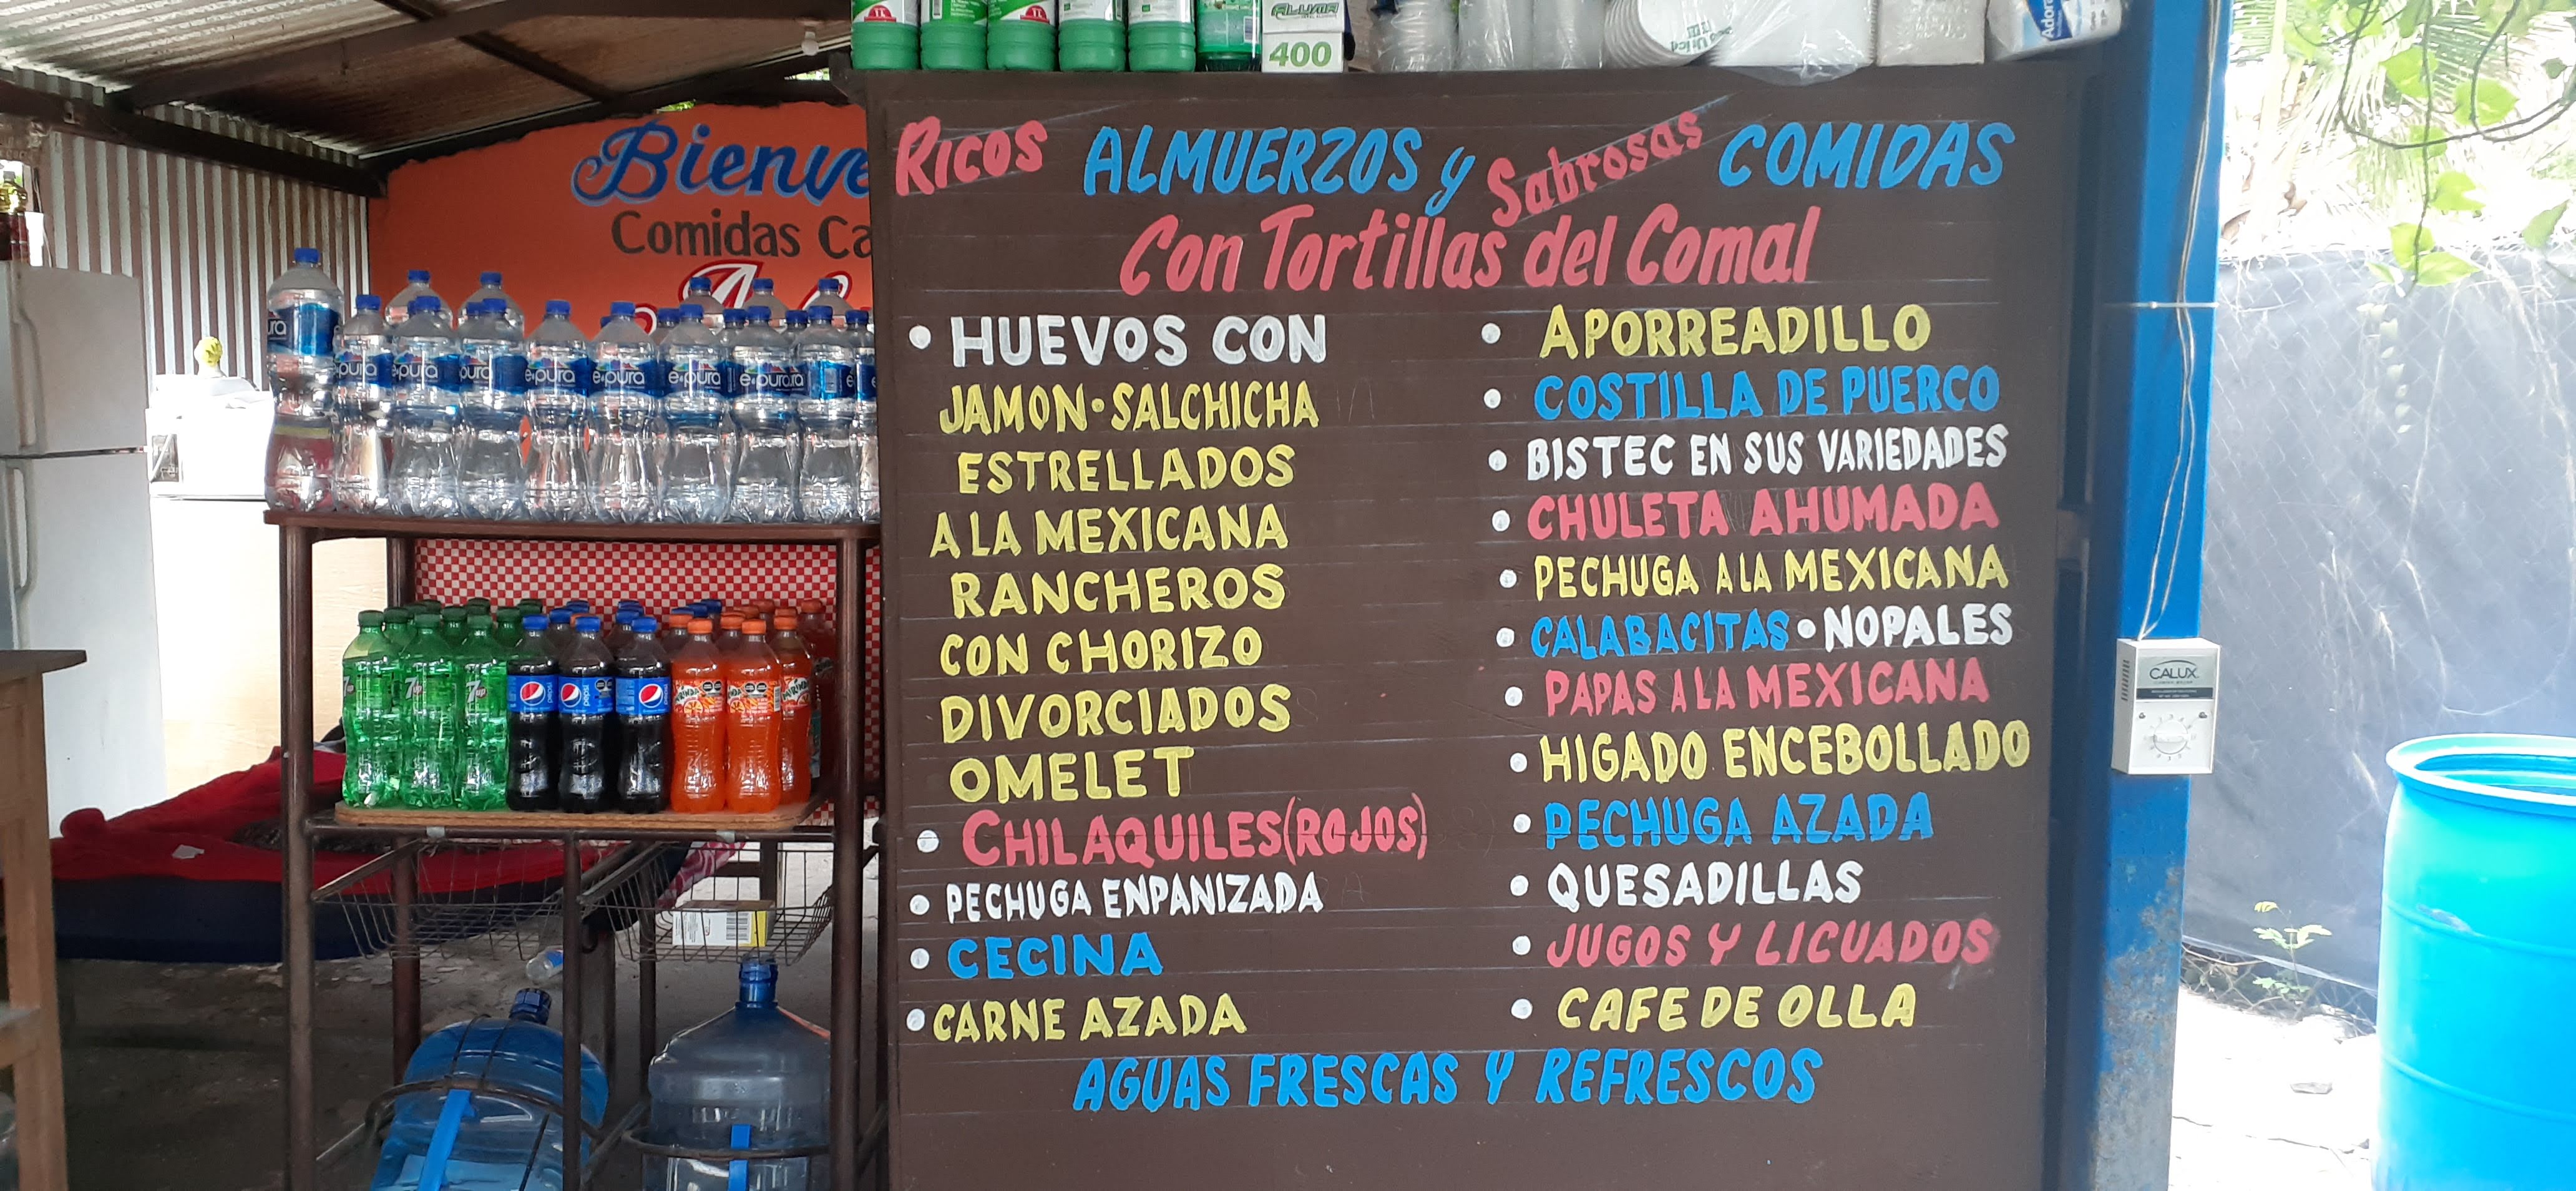 ALUMA
400
Adora
Bienve
Comidas Ca
RICOS ALMUERZOS y Sabrosas COMIDAS
Con Tortillas del Comal
• HUEVOS CON
JAMON•SALCHICHA
ESTRELLADOS
A LA MEXICANA
RANCHEROS
CON CHORIZO
DIVORCIADOS
OMELET
• CHILAQUILES(ROJOS)
• PECHUGA ENPANIZADA
• CECINA
• CARNE AZADA
• APORREADILLO
• COSTILLA DE PUERCO
• BISTEC EN SUS VARIEDADES
• CHULETA AHUMADA
• PECHUGA A LA MEXICANA
• CALABACITAS•NOPALES
• PAPAS A LA MEXICANA
• HIGADO ENCEBOLLADO
• PECHUGA AZADA
• QUESADILLAS
• JUGOS Y LICUADOS
• CAFE DE OLLA
AGUAS FRESCAS Y REFRESCOS
ura
e·pura e·pura e·pura e·pura e·pura e·pura e·pura
7up 7up 7up pepsi pepsi pepsi
CALUX